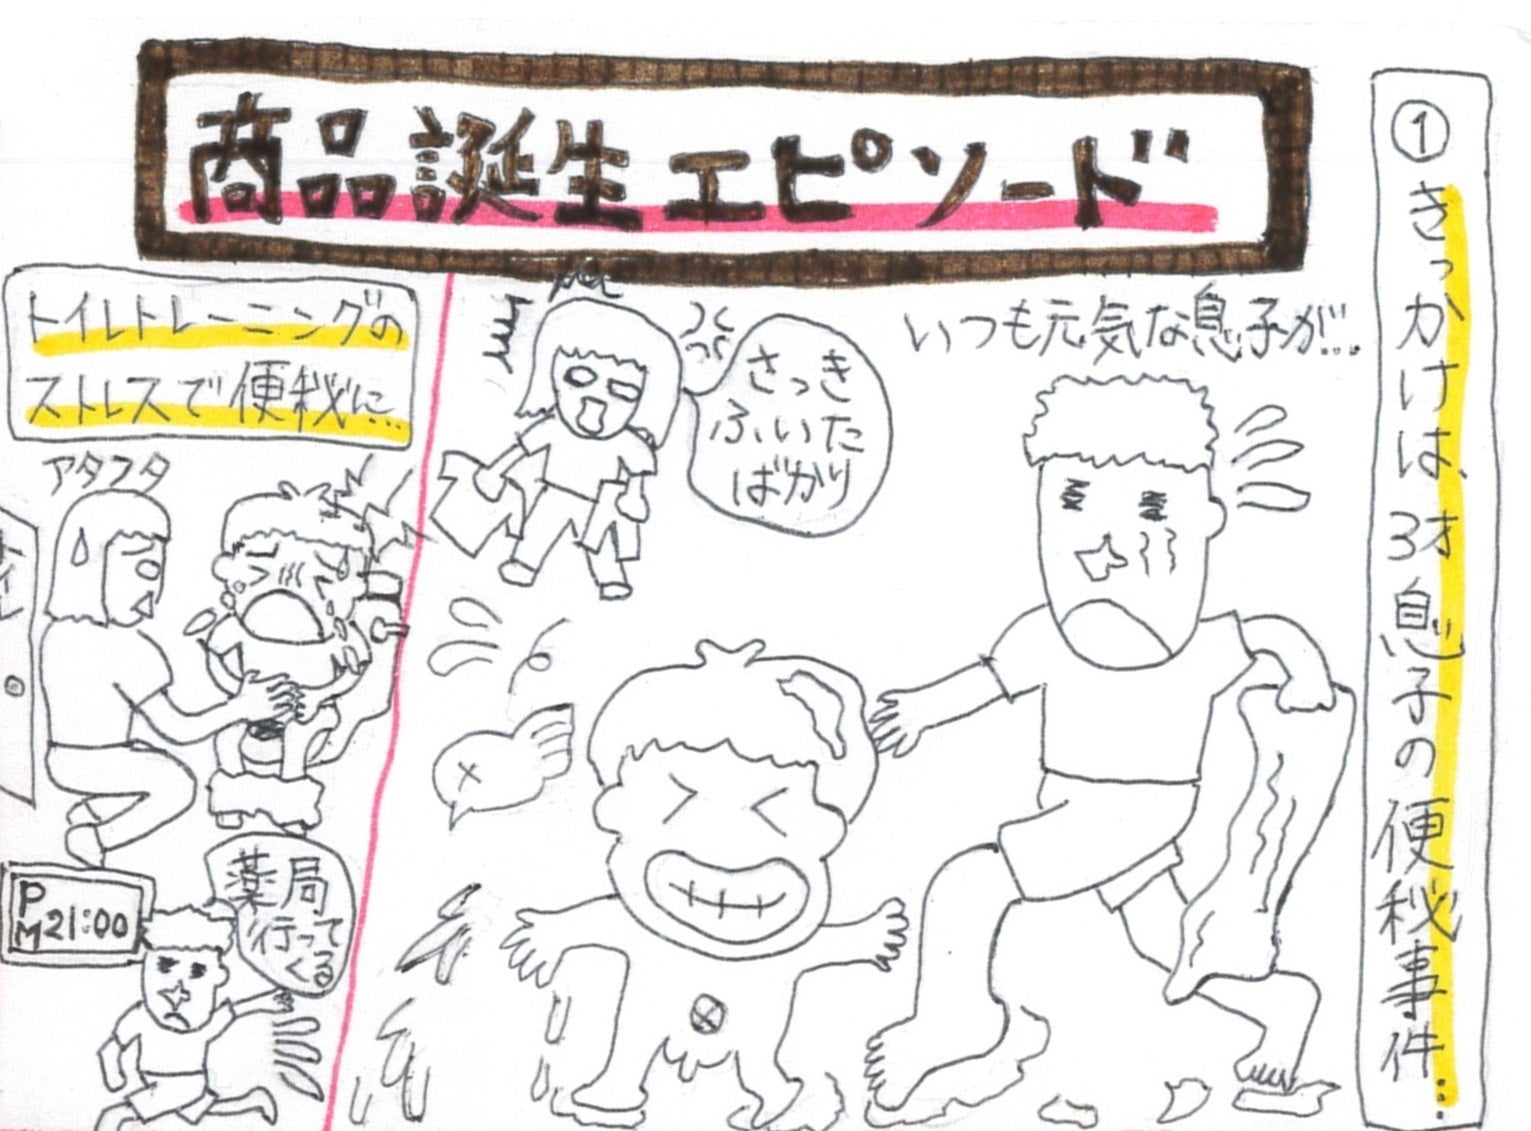 商品誕生エピソード
①きっかけは、3才息子の便秘事件…
いつも元気な息子が…
さっき
ふいた
ばかり
トイレトレーニングの
ストレスで便秘に…
アタフタ
トイレ
薬局
行って
くる
PM21:00